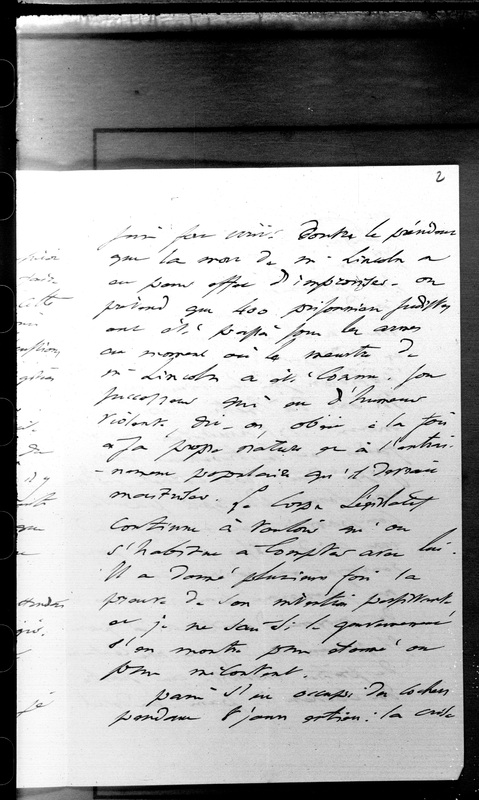 2
que la mort de Mr Lincoln a
eu pour effet d'improviser. on
prétend que 400 prisonniers sudistes
ont été passés par les armes
au moment où le meurtre de
Mr Lincoln a été connu. Son
successeur qui est d'humeur
violente, dit-on, obéit à la fois
à sa propre nature et à l'entraî-
-nement populaire qu'il devrait
maîtriser. Le Corps Législatif
continue à vouloir qu'on
s'habitue à compter avec lui.
Il a donné plusieurs fois la
preuve de son intention persistante
et je ne sais si le gouvernement
s'en montre plus étonné ou
plus mécontent.
Paris s'est occupé des cochers
pendant 8 jours entiers : la crise